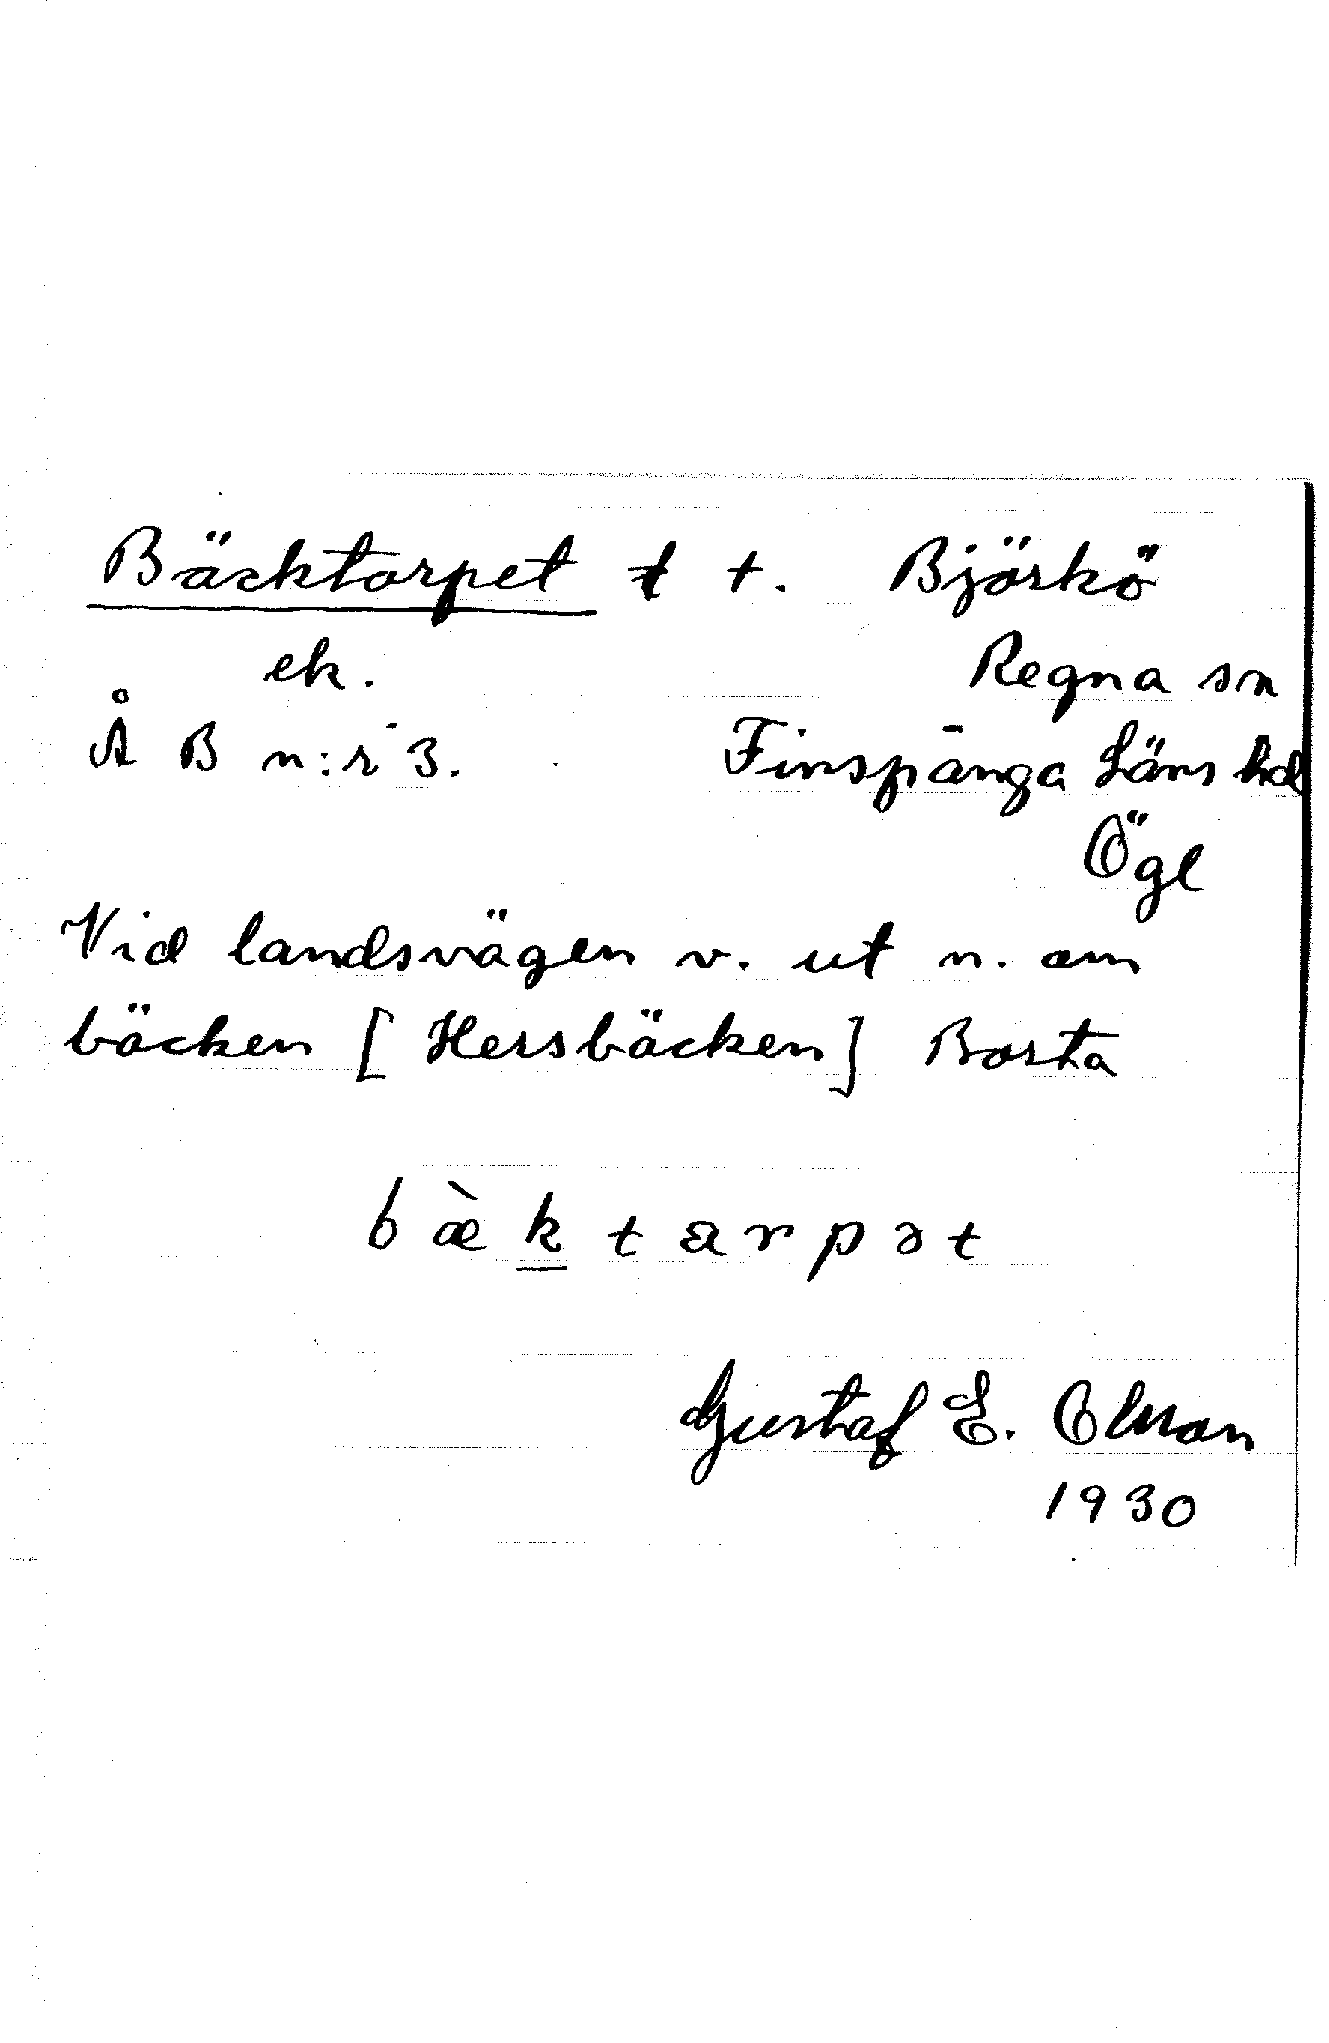 Bäcktorpet t t. Björkö
ek. Regna sn
Å B n:r 3. Finspånga Läns hd
Ögl
Vid landsvägen v. ut n. om
bäcken [Hersbäcken] Borta
bæ̀ktarpət
Gustaf E. Olsson
1930